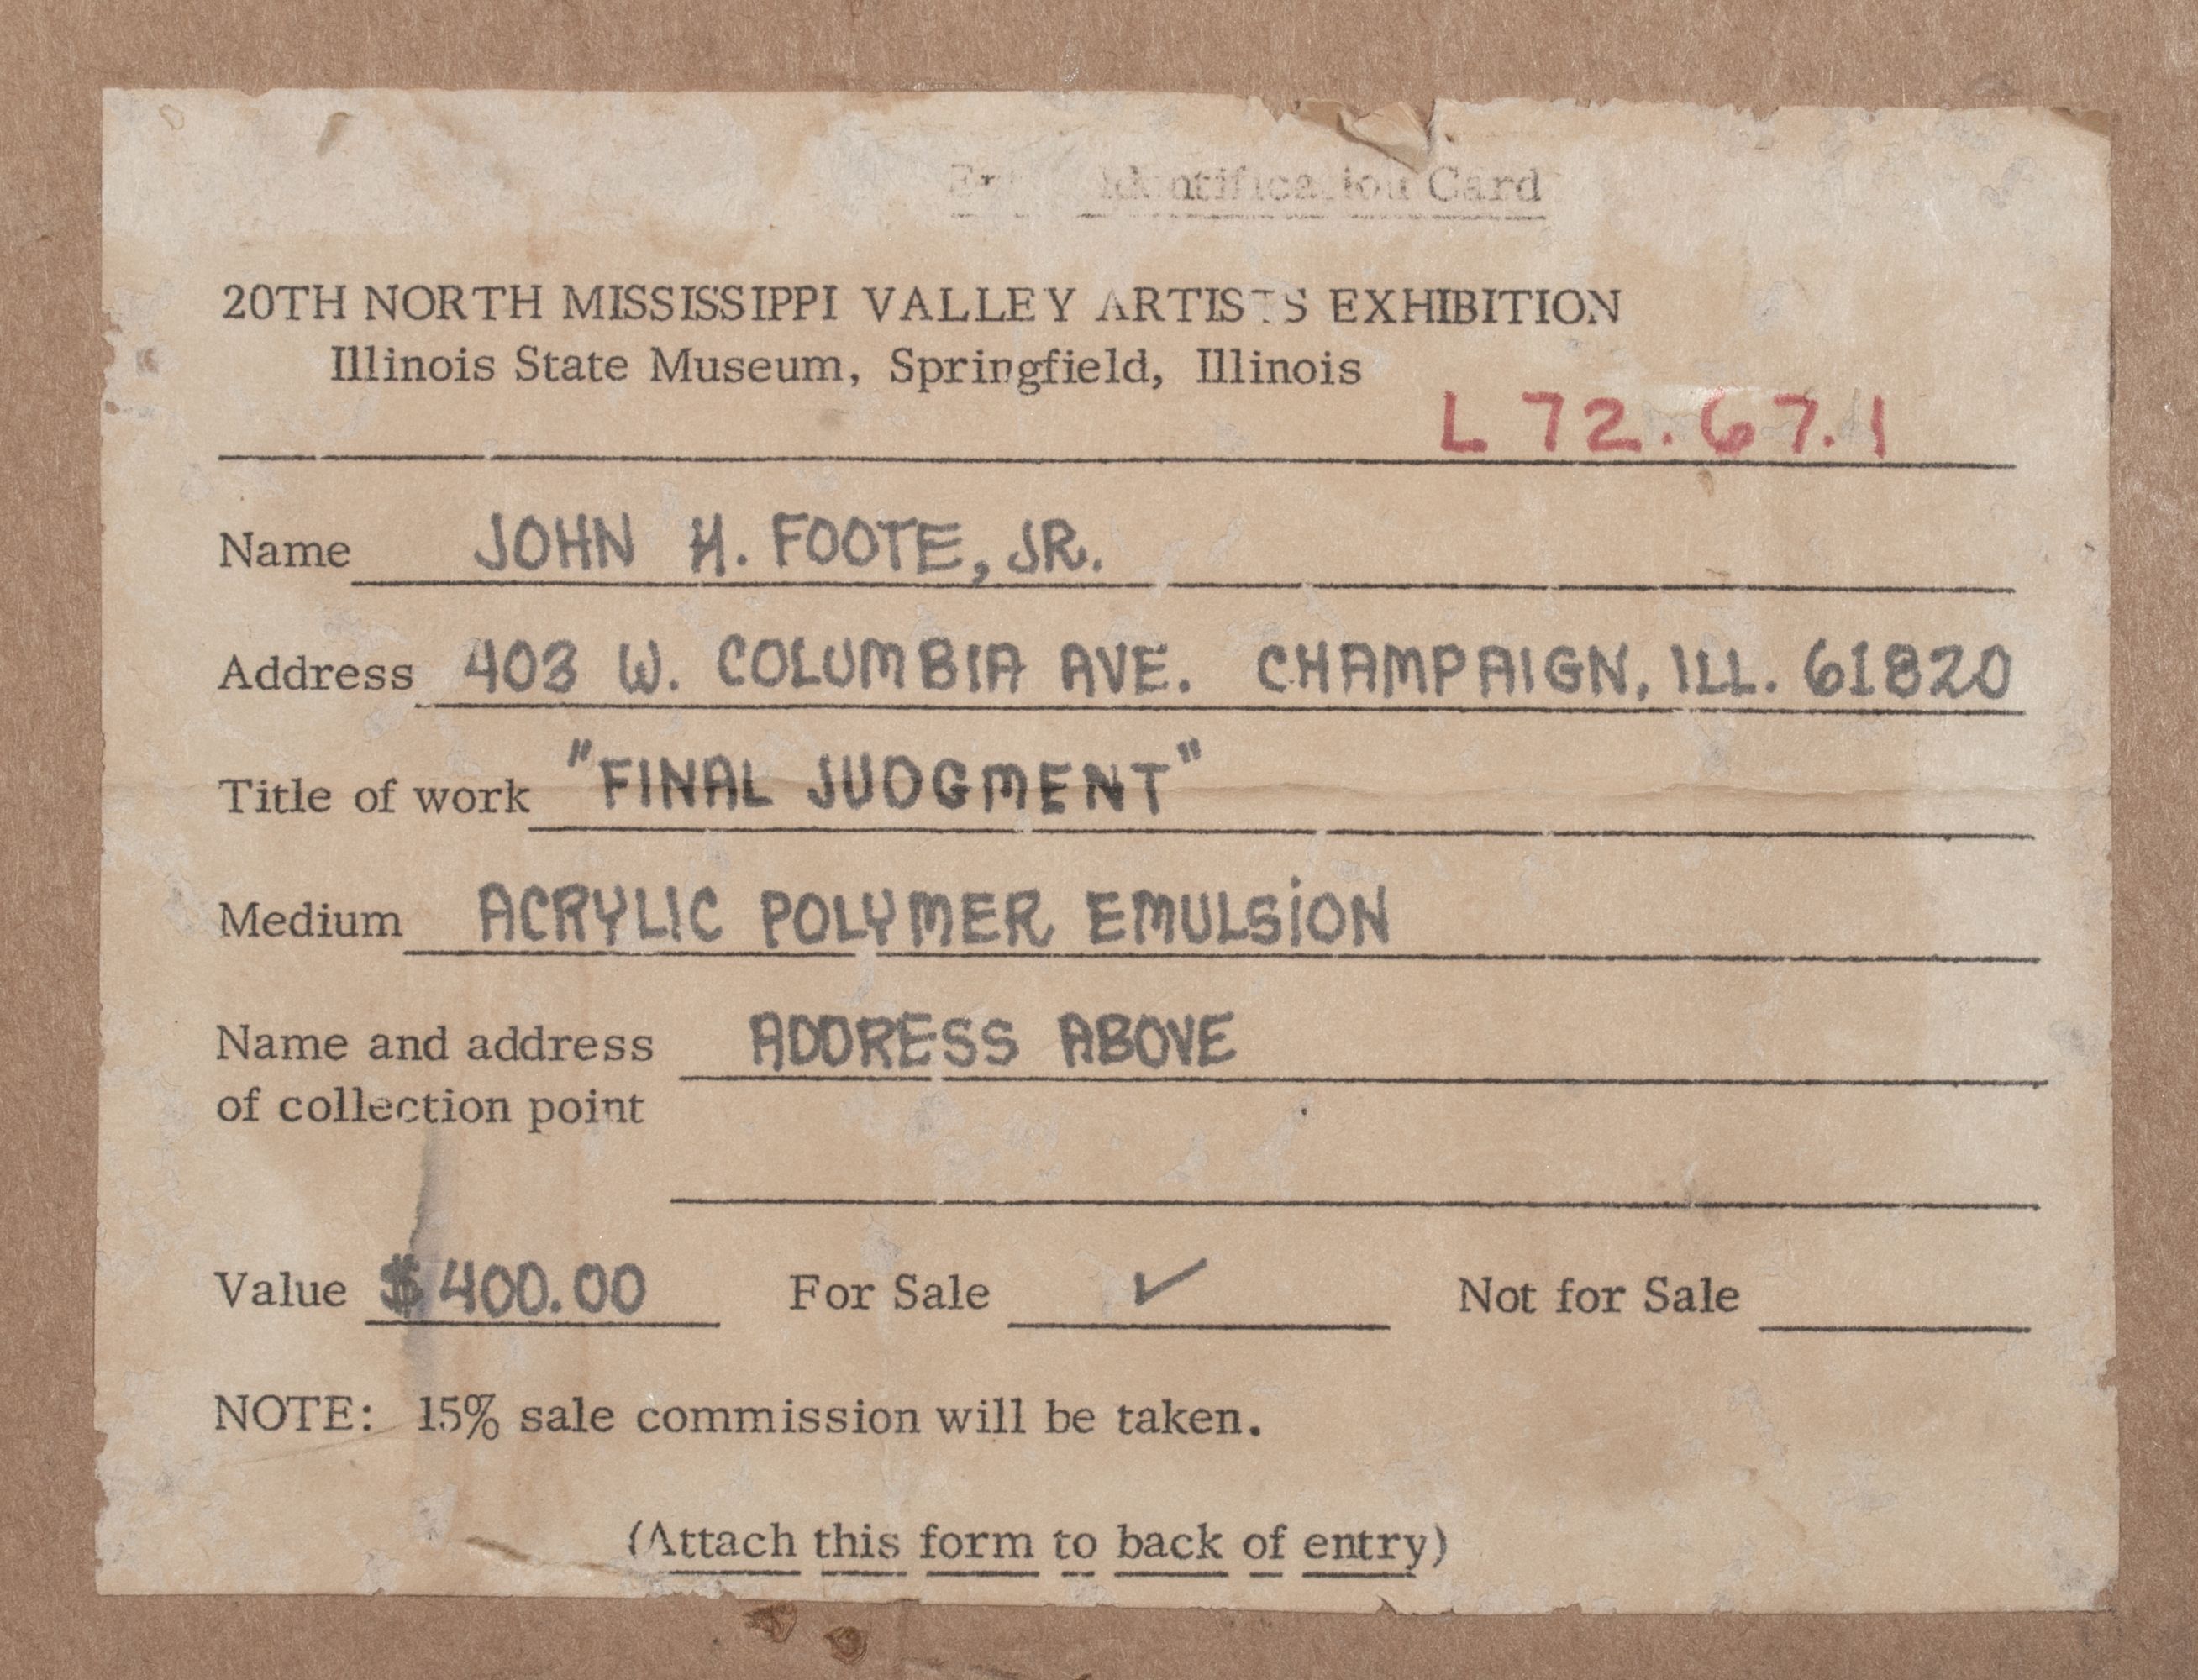 Identification Card
20TH NORTH MISSISSIPPI VALLEY ARTISTS EXHIBITION
Illinois State Museum, Springfield, Illinois
L 72.67.1
Name JOHN H. FOOTE, JR.
Address 403 W. COLUMBIA AVE. CHAMPAIGN, ILL. 61820
Title of work "FINAL JUDGMENT"
Medium ACRYLIC POLYMER EMULSION
Name and address ADDRESS ABOVE
of collection point
Value $400.00 For Sale ✓ Not for Sale
NOTE: 15% sale commission will be taken.
(Attach this form to back of entry)